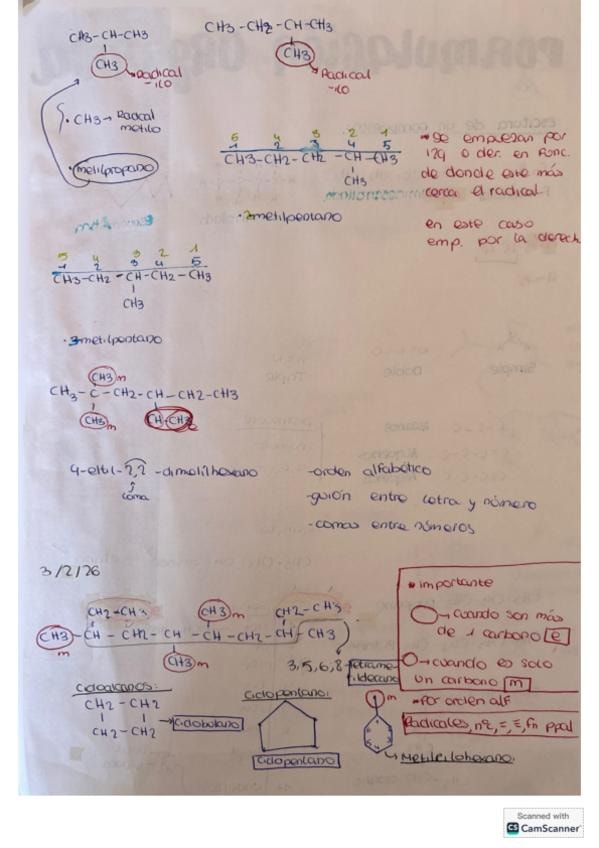 CH3-CH-CH3
CH3
Radical
-ilo
CH3 -CH2 -CH-CH3
CH3
Radical
-ilo
· CH3 → Radical
metilo
· metilpropano
5 4 3 2 1
1 2 3 4 5
CH3-CH2-CH2 -CH-CH3
CH3
· 2metilpentano
* Se empiezan por
izq o der. en func.
de donde esté más
cerca el radical
en este caso
emp. por la derech
5 4 3 2 1
1 2 3 4 5
CH3-CH2 -CH-CH2-CH3
CH3
· 3metilpentano
CH3 m
CH3-C-CH2-CH-CH2-CH3
CH3 m
e
-2,2-dimetilhexano
coma
-orden alfabético
-guión entre letra y número
-comas entre números
3/2/26
CH2-CH3 e
CH3 m
CH2-CH3
CH3-CH-CH2-CH-CH-CH2-CH-CH3
m
CH3 m
3,5,6,8-tetrame
tildecano
* importante
→ cuando son más
de 1 carbono e
→ cuando es solo
un carbono m
*Por orden alf
Radicales, nº, =, ≡, fn ppal
Cicloalcanos:
CH2 - CH2
CH2 - CH2
→ ciclobutano
Ciclopentano:
Ciclopentano
m
Scanned with
CS CamScanner